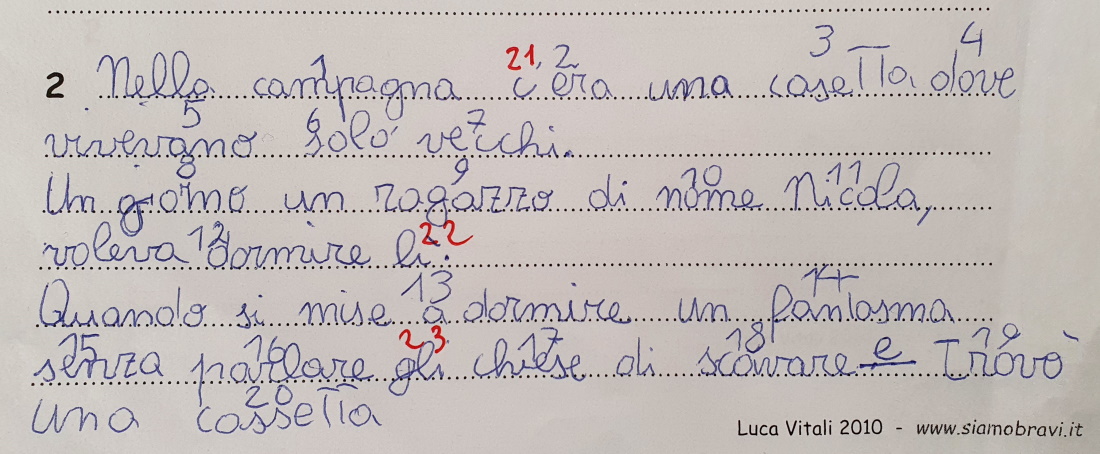 21, 2 3 4
2 Nella campagna c'era una casetta dove
5 6 7
vivevano solo vecchi.
8 9 10 11
Un giorno un ragazzo di nome Nicola,
12 22
voleva dormire li.
13 14
Quando si mise a dormire un fantasma
15 16 23 17 18 19
senza parlare gli chiese di scavare e trovò
20
una cassetta
Luca Vitali 2010 - www.siamobravi.it